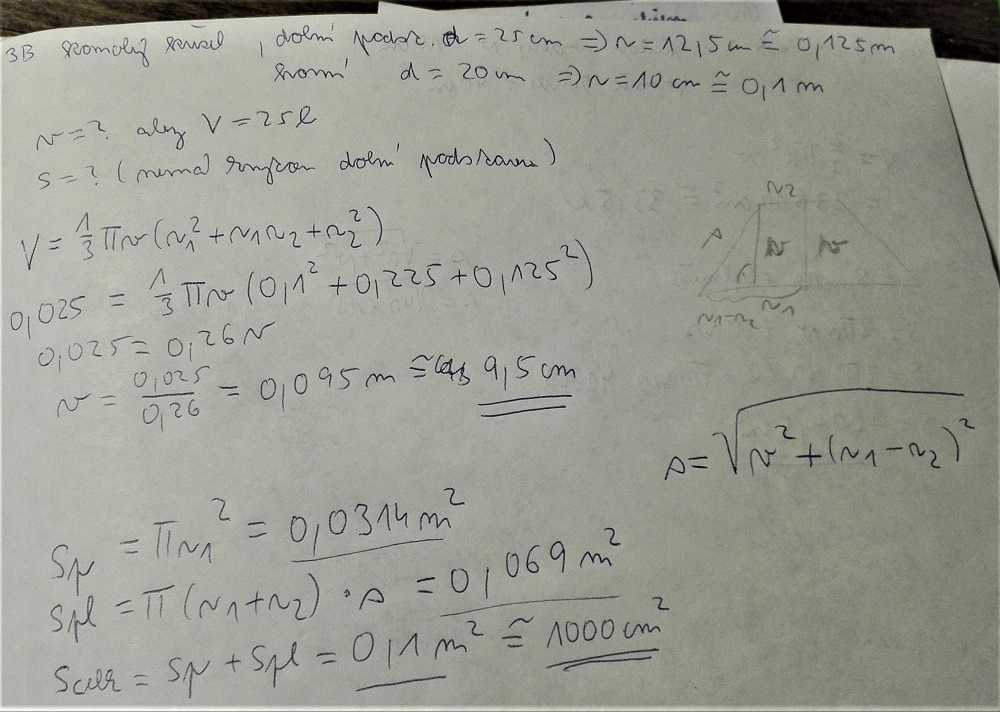 3B komolý kužel, dolní podst. d = 25 cm ⇒ r = 12,5 cm ≅ 0,125 m
horní d = 20 cm ⇒ r = 10 cm ≅ 0,1 m
v = ? aby V = 25 l
S = ? (nemá dolní podstavu)
V = 1/3 π v (r1² + r1 r2 + r2²)
0,025 = 1/3 π v (0,1² + 0,225 + 0,125²)
0,025 = 0,26 v
v = 0,025/0,26 = 0,095 m ≅ 9,5 cm
r2
s
v
v
r1
r1-r2
s = √(v² + (r1 - r2)²)
Sp = π r1² = 0,0314 m²
Spl = π (r1 + r2) · s = 0,069 m²
Scelk = Sp + Spl = 0,1 m² ≅ 1000 cm²